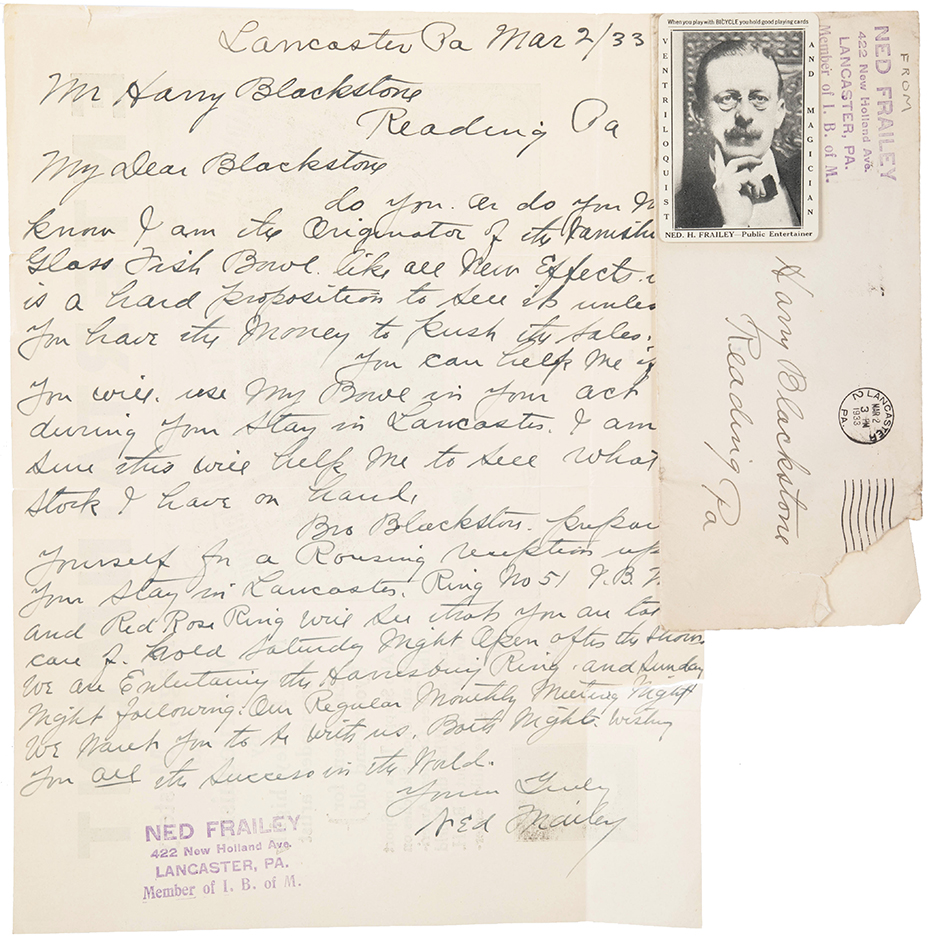 Lancaster Pa Mar 2/33
Mr Harry Blackstone
Reading Pa
My Dear Blackstone
do you. or do you
know I am the Originator of the
Glass Fish Bowl. like all New Effects.
is a hard proposition to sell it
You have the Money to push the sales.
You can help Me
You will. use My Bowl in Your act
during Your Stay in Lancaster. I am
Sure this will help Me to Sell what
Stock I have on hand.
Bro Blackston.
Yourself for a Rousing reception
Your Stay in Lancaster. Ring No 51 I.B.
and Red Rose Ring will See that You are
care of. hold Saturday Night Open after the Show.
We are Entertaining the Harrisburg Ring. and Sunday
Night following. Our Regular Monthly Meeting Night
We Want You to be with us. Both Nights. Wishing
You all the Success in the World.
Yours Truly
Ned Frailey
NED FRAILEY
422 New Holland Ave.
LANCASTER, PA.
Member of I. B. of M.
When you play with BICYCLE you hold good playing cards
VENTRILOQUIST
AND MAGICIAN
NED. H. FRAILEY—Public Entertainer
FROM
NED FRAILEY
422 New Holland Ave.
LANCASTER, PA.
Member of I. B. of M.
Harry Blackstone
Reading Pa
LANCASTER
MAR 2
3 PM
1933
PA.
2